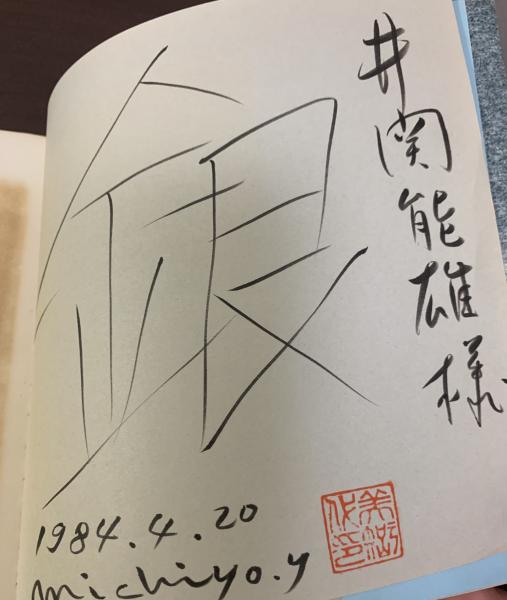 井関能雄様
銀
1984.4.20
michiyo.y